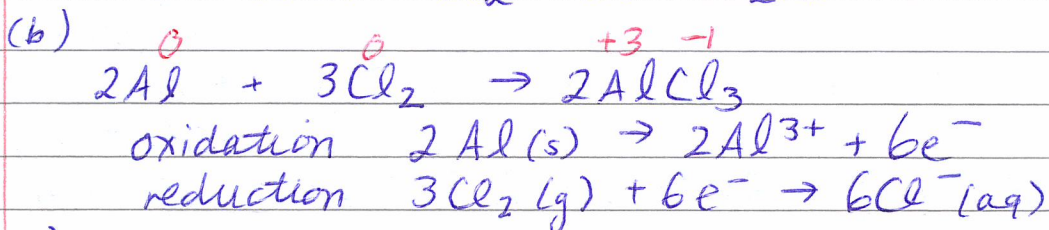 (b)
0 0 +3 -1
2Al + 3Cl₂ → 2AlCl₃
oxidation 2Al(s) → 2Al³⁺ + 6e⁻
reduction 3Cl₂(g) + 6e⁻ → 6Cl⁻(aq)